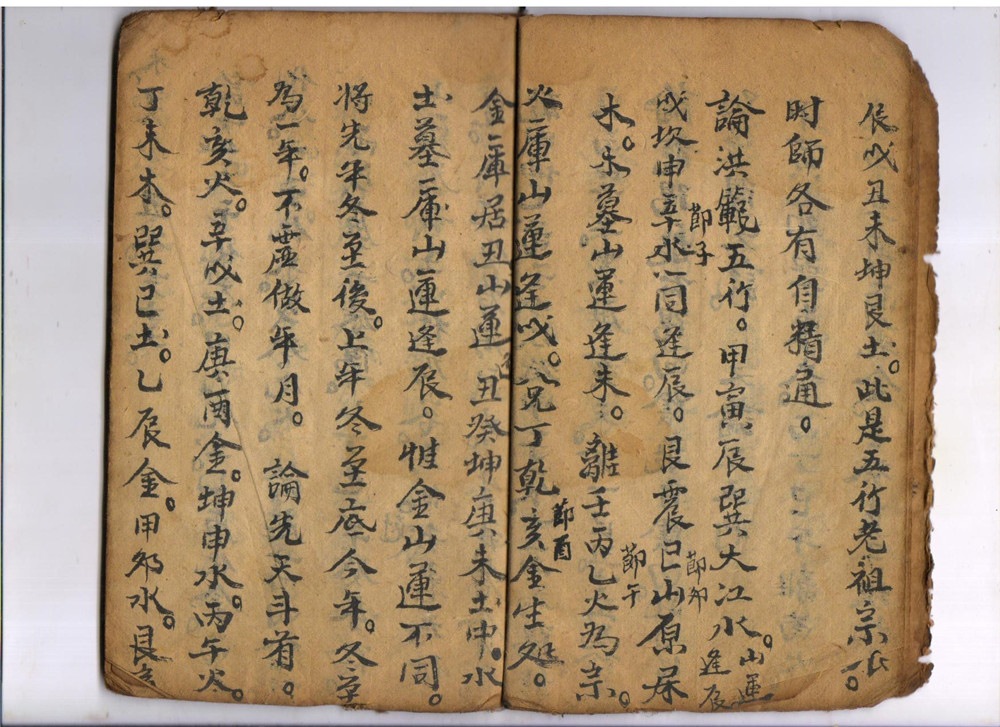 辰戌丑未坤艮土。此是五行老祖宗。
时師各有自精通。
論洪範五行。甲寅辰巽大江水。山運逢辰
戌坎申辛水同。逢辰。艮震巳山原屎
節子
節卯
木。木墓山運逢未。離壬丙乙火為宗。
節午
火庫山運逢戌。兑丁乾亥金生处。
節酉
金庫居丑山運丑癸坤庚未土中。水
土墓庫山運逢辰。惟金山運不同。
将先年冬至後。上年冬至底今年。冬至
為一年。不虚做年月。論先天斗首。
乾亥火。辛戌土。庚酉金。坤申水。丙午火。
丁未木。巽巳土。乙辰金。甲卯水。艮